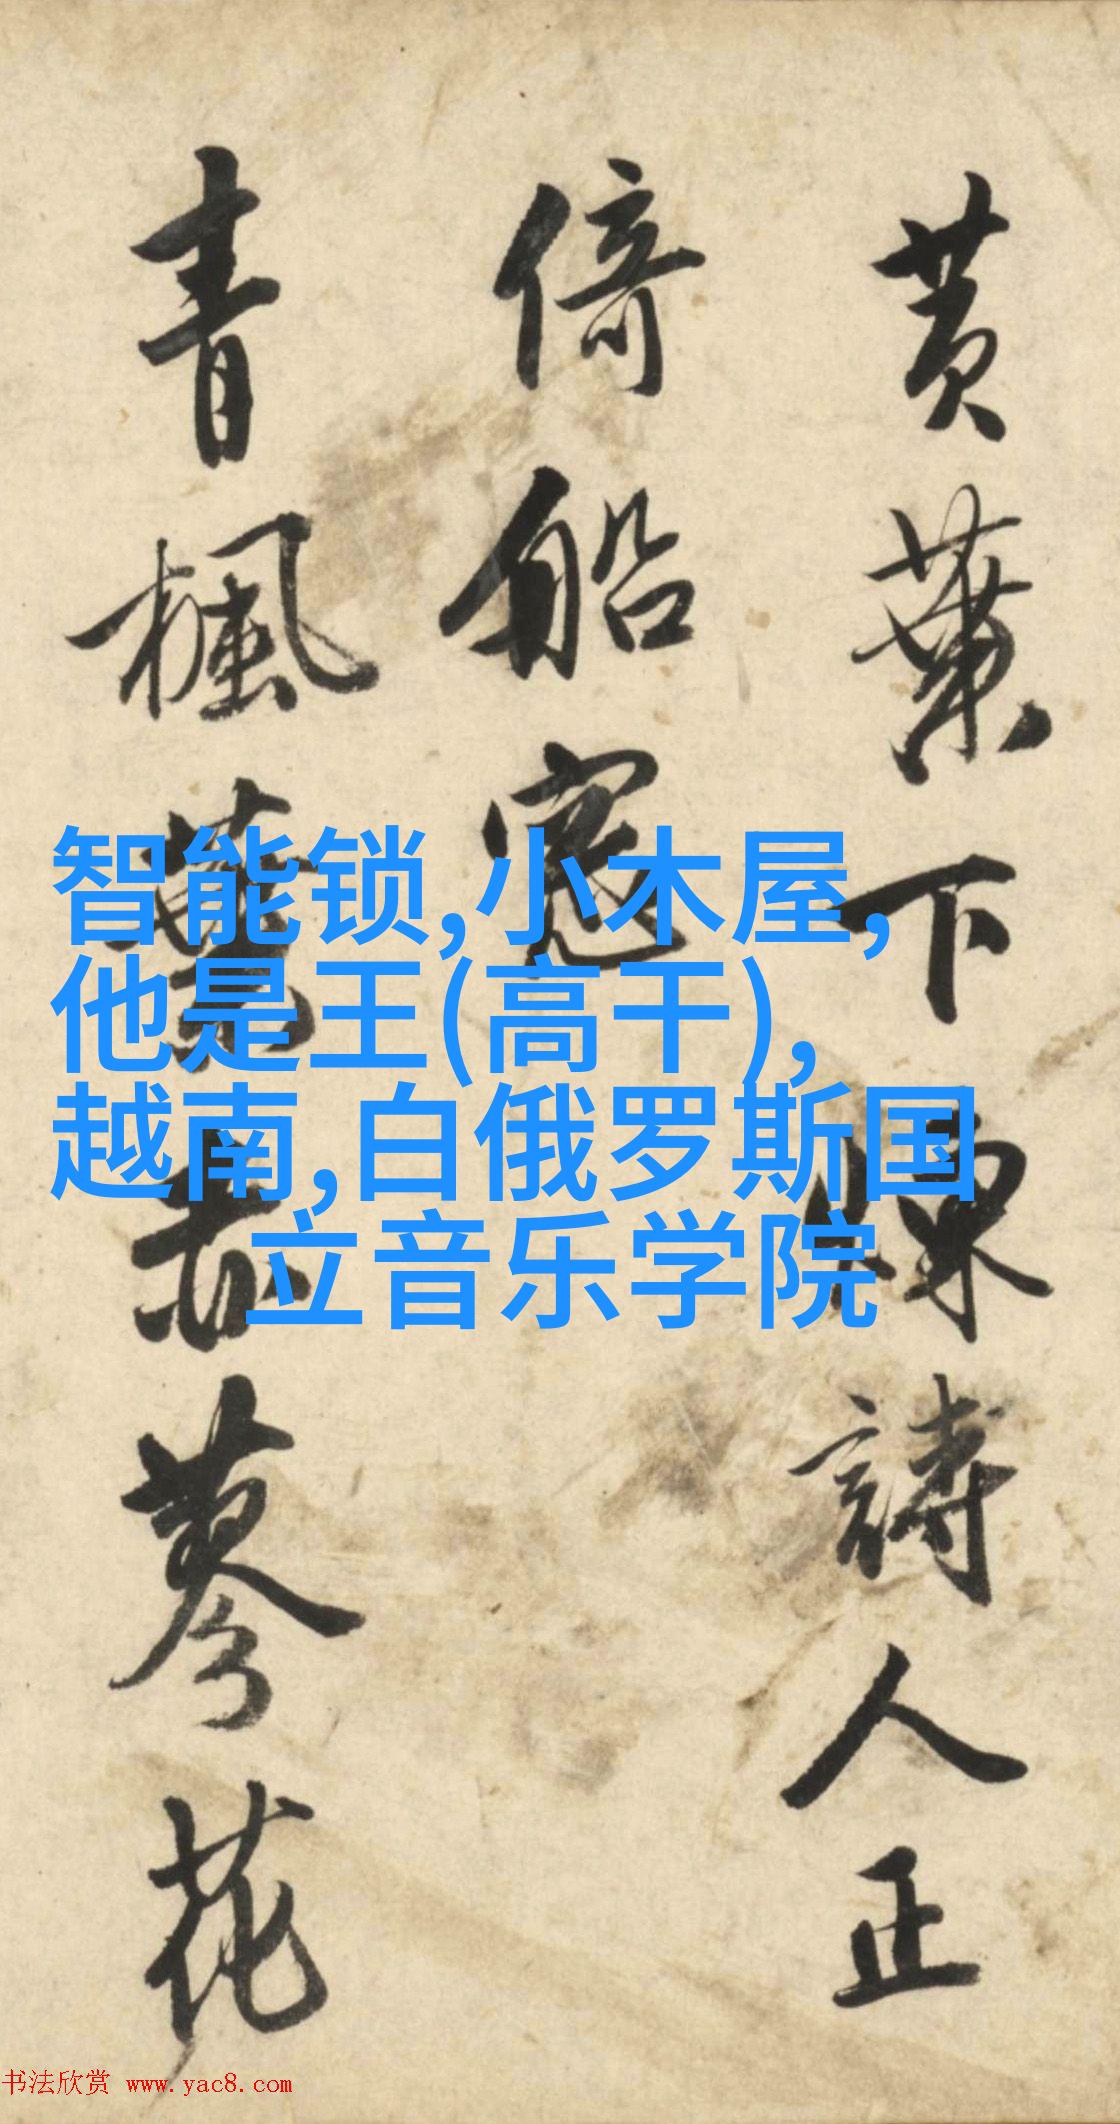 智能锁,小木屋,
他是王(高干),
越南,白俄罗斯国
立音乐学院
黄葉下詩人正
倚船
青楓蓼花
书法欣赏 www.yac8.com